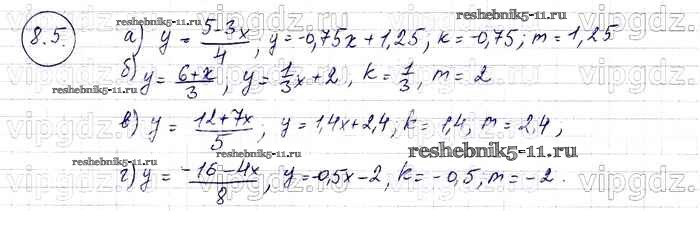 vipgdz.
reshebnik5-11.ru
8.5. а) y = (5-3x)/4, y = -0,75x + 1,25; k = -0,75; m = 1,25
б) y = (6+x)/3, y = 1/3x + 2, k = 1/3, m = 2
reshebnik5-11.ru
reshebnik5-11.ru
в) y = (12+7x)/5, y = 1,4x + 2,4, k = 1,4, m = 2,4,
reshebnik5-11.ru
reshebnik5-11.ru
г) y = (-16-4x)/8, y = -0,5x - 2, k = -0,5, m = -2.